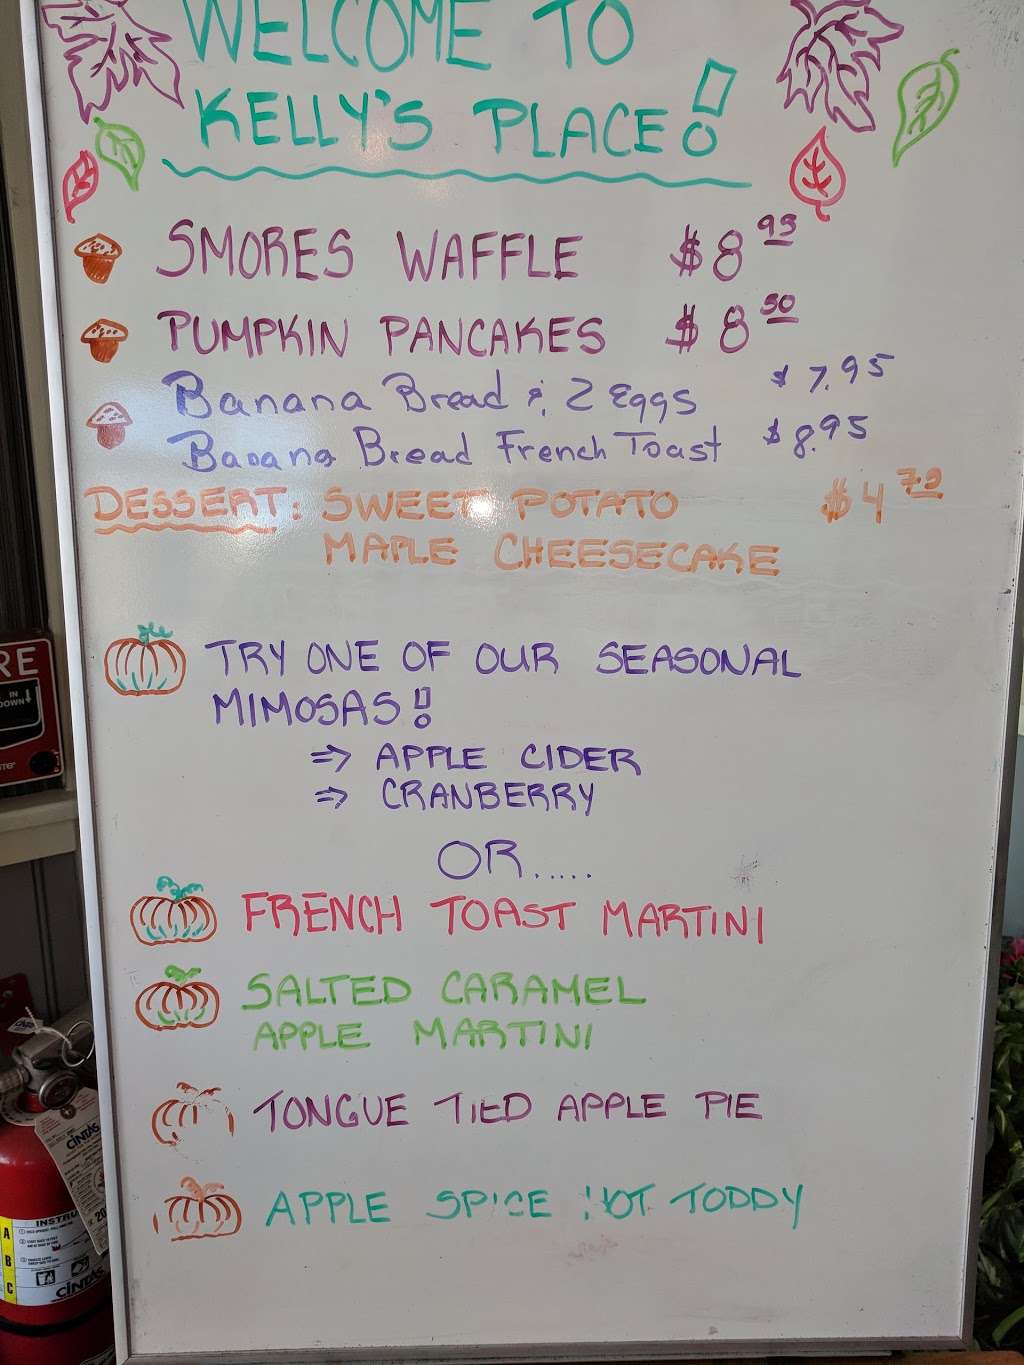 WELCOME TO
KELLY'S PLACE!
SMORES WAFFLE $8 95
PUMPKIN PANCAKES $8 50
Banana Bread & 2 Eggs $7.95
Banana Bread French Toast $8.95
DESSERT: SWEET POTATO $4
MAPLE CHEESECAKE
TRY ONE OF OUR SEASONAL
MIMOSAS!
⇒ APPLE CIDER
⇒ CRANBERRY
OR.....
FRENCH TOAST MARTINI
SALTED CARAMEL
APPLE MARTINI
TONGUE TIED APPLE PIE
APPLE SPICE HOT TODDY
RE
IN
DOWN
CINTAS
INSTRU
A
B
C
CINTAS